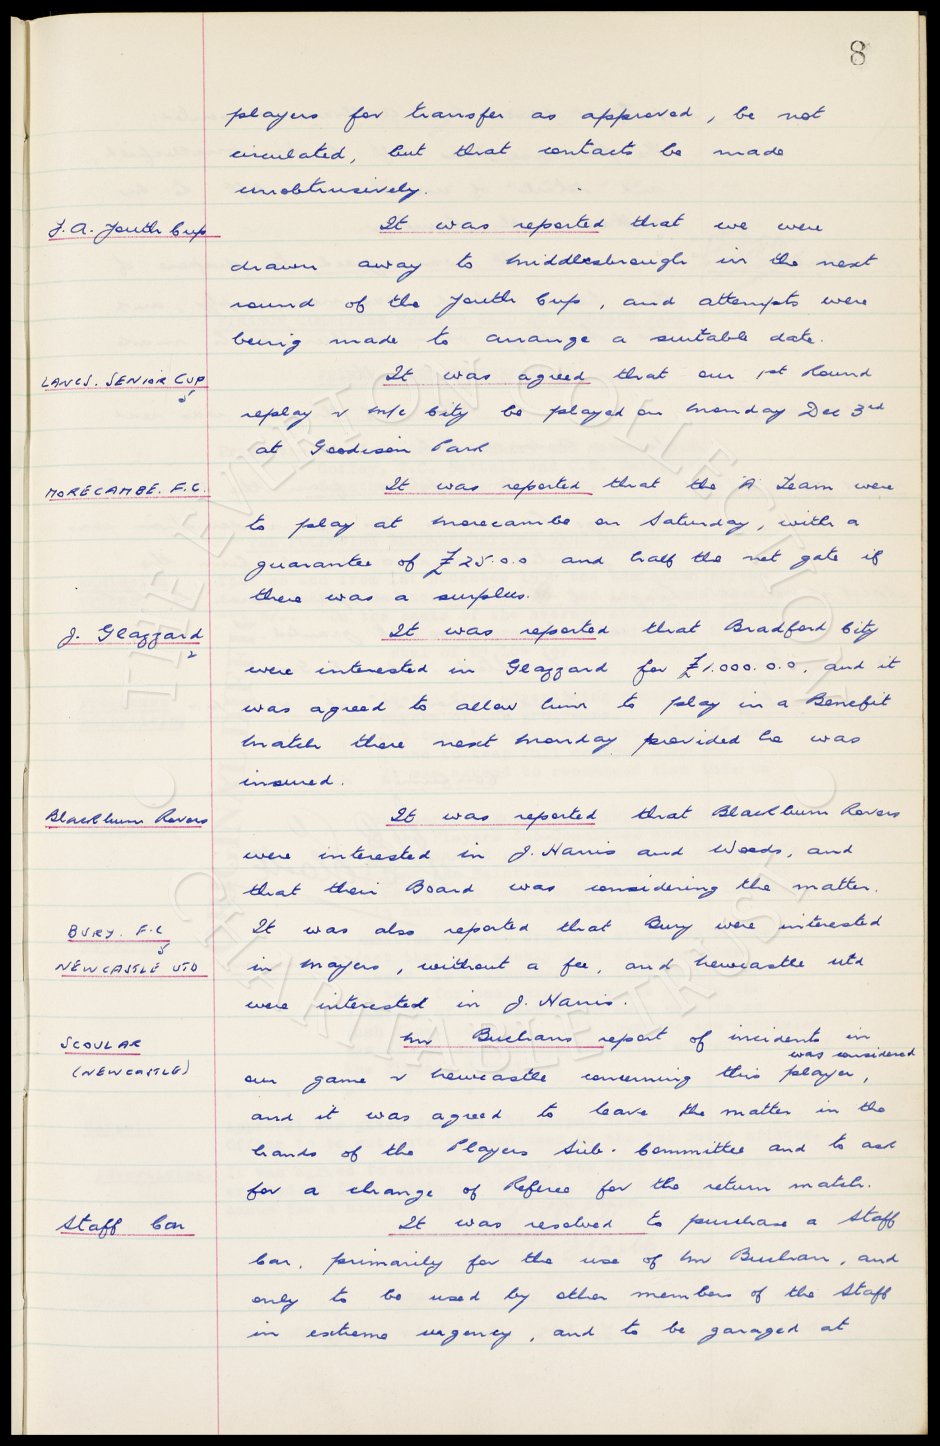 8
players for transfer as approved, be not
circulated, but that contacts be made
unobtrusively.
F.A. Youth Cup It was reported that we were
drawn away to Middlesbrough in the next
round of the Youth Cup, and attempts were
being made to arrange a suitable date.
LANCS. SENIOR CUP It was agreed that our 1st Round
replay v M/c City be played on Monday Dec 3rd
at Goodison Park
MORECAMBE. F.C. It was reported that the 'A' Team were
to play at Morecambe on Saturday, with a
guarantee of £25.0.0 and half the net gate if
there was a surplus.
J. Glazzard It was reported that Bradford City
were interested in Glazzard for £1.000.0.0, and it
was agreed to allow him to play in a Benefit
Match there next Monday provided he was
insured.
Blackburn Rovers It was reported that Blackburn Rovers
were interested in J. Harris and Woods, and
that their Board was considering the matter.
BURY. F.C It was also reported that Bury were interested
NEWCASTLE UTD in Mayers, without a fee, and Newcastle Utd
were interested in J. Harris.
SCOULAR Mr Buchans report of incidents in
was considered
(NEWCASTLE) our game v Newcastle concerning this player,
and it was agreed to leave the matter in the
hands of the Players Sub-Committee and to ask
for a change of Referee for the return match.
Staff Car It was resolved to purchase a Staff
Car, primarily for the use of Mr Buchan, and
only to be used by other members of the Staff
in extreme urgency, and to be garaged at
THE EVERTON COLLECTION
CHARITABLE TRUST